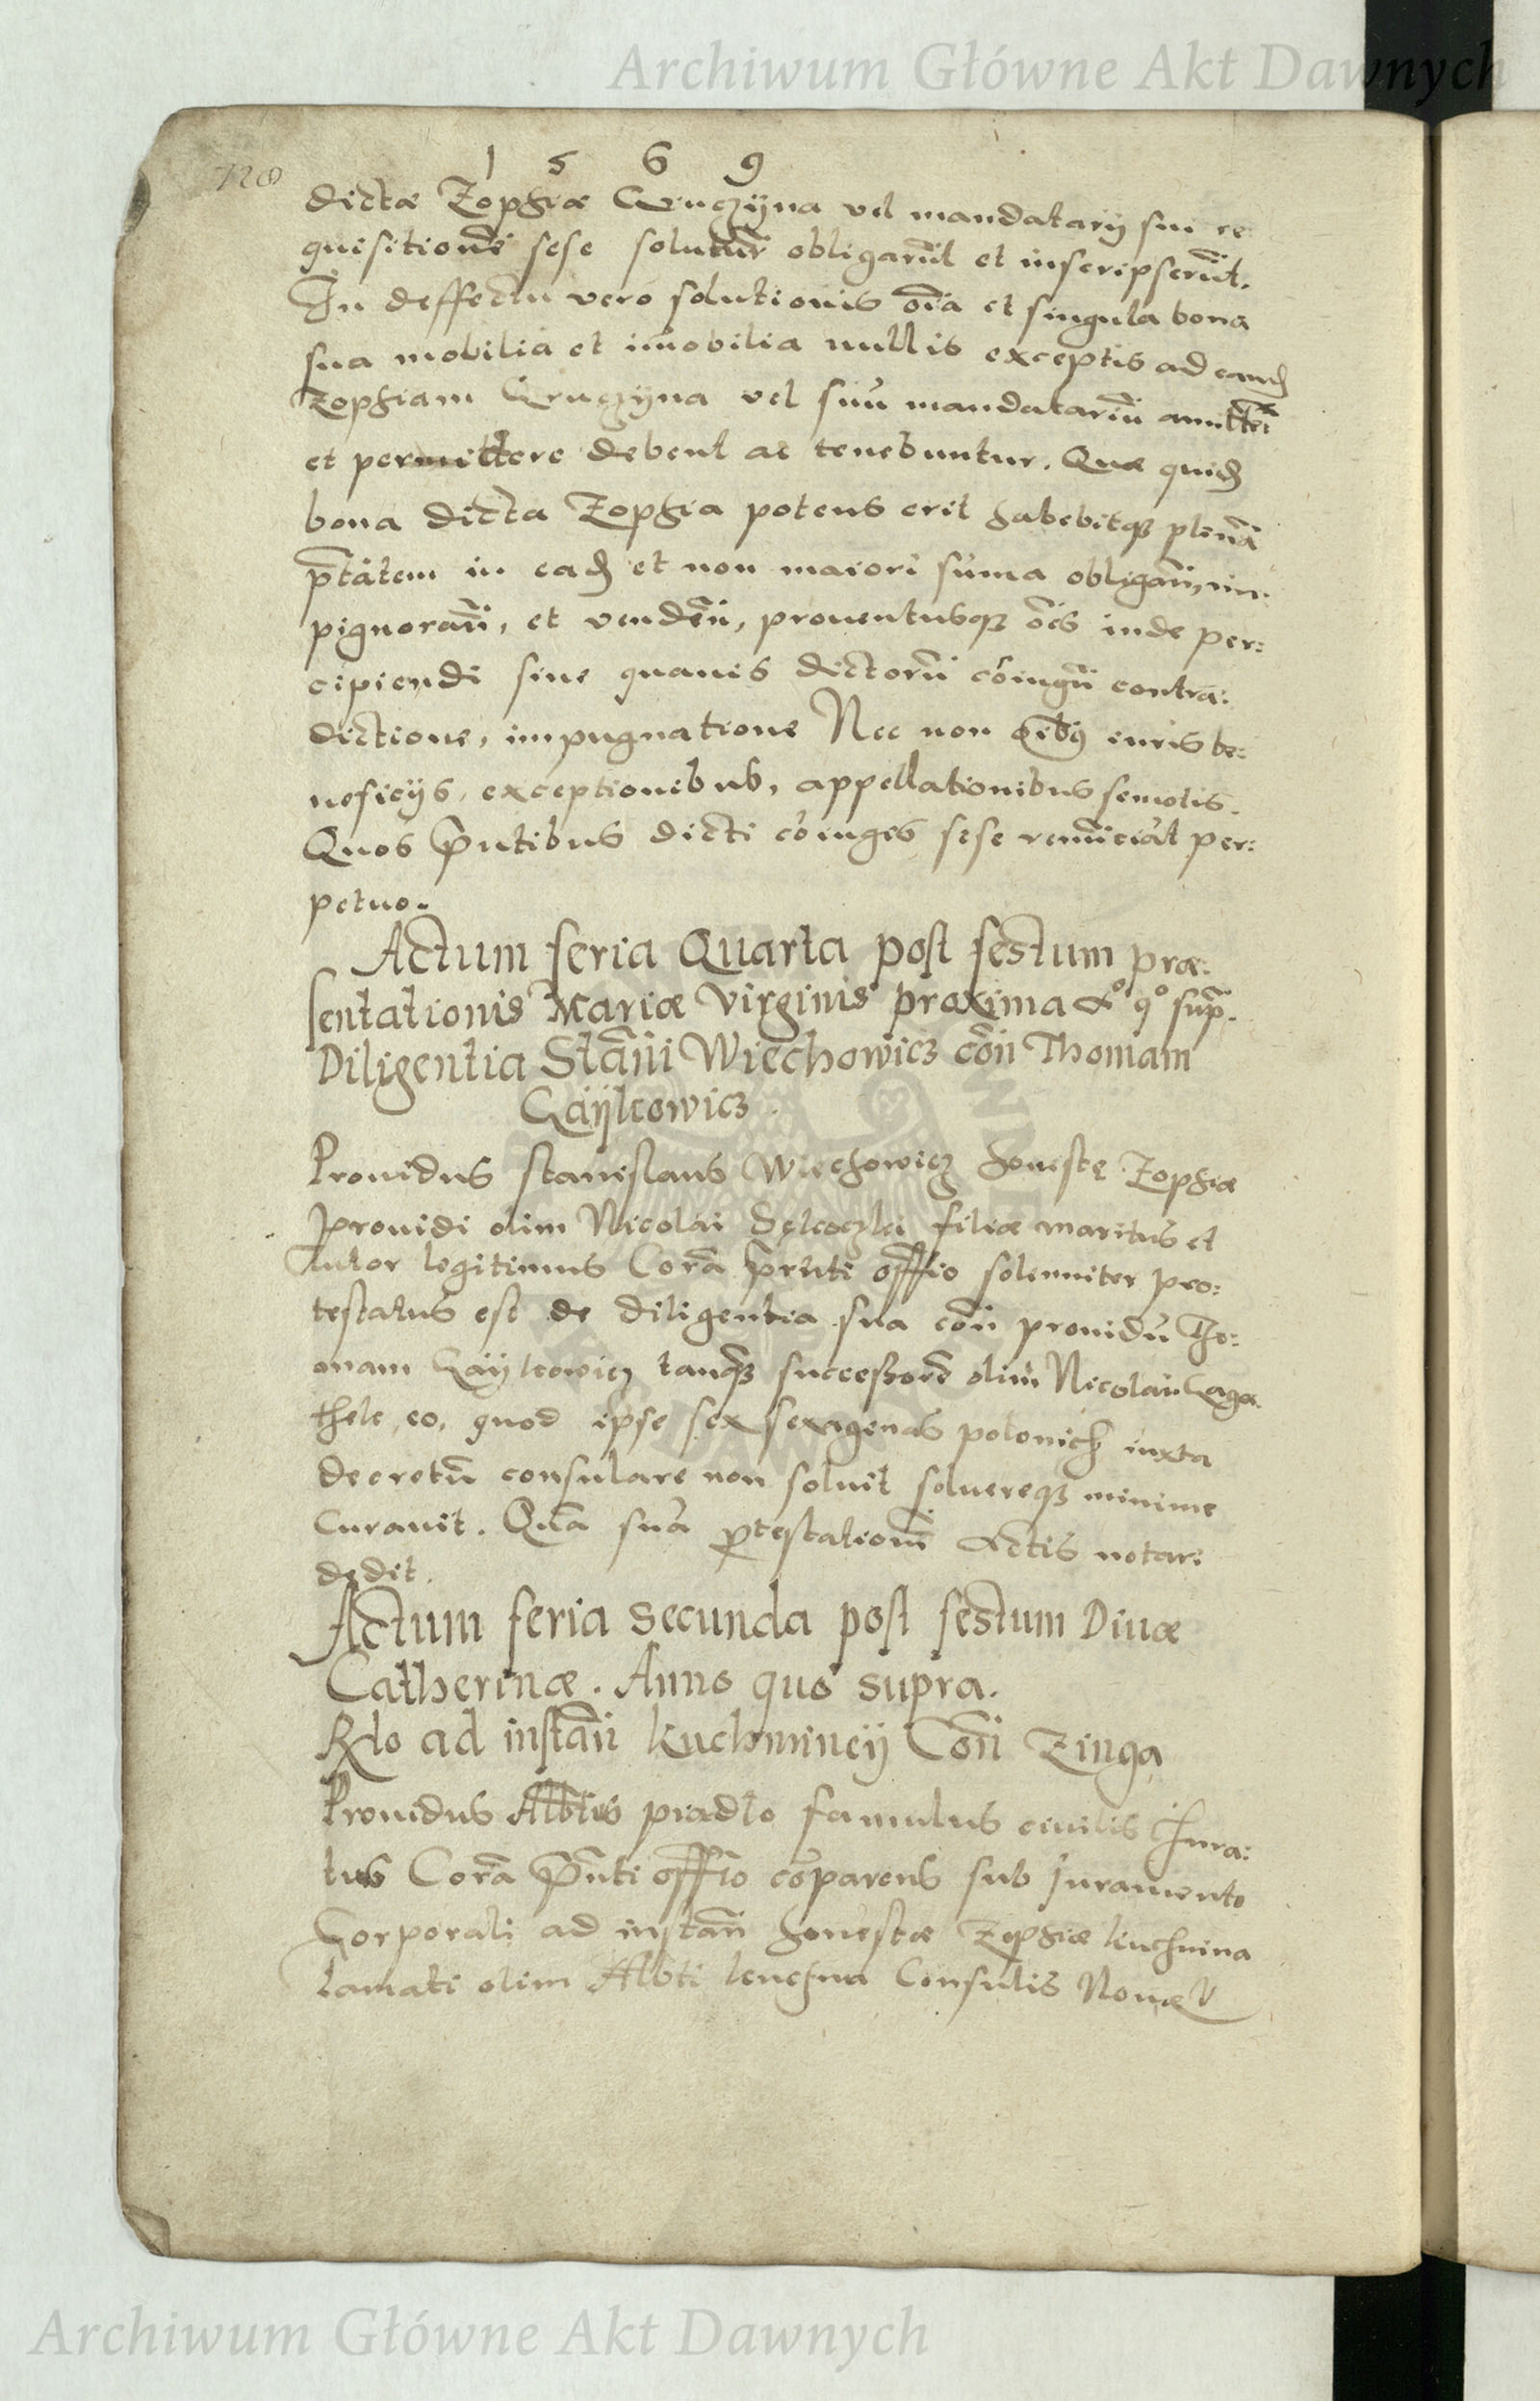 Archiwum Główne Akt Dawnych
728
1 5 6 9
dictæ Zophiæ Gruczÿna vel mandatarÿ sui re
quisitionē sese soluturū obligarūt et inscripserūt.
In deffectu vero solutionis oīa et singula bona
sua mobilia et īmobilia nullis exceptis ad eand
Zophiam Gruczÿna vel suū mandatariū
et permittere debent ac tenebuntur. Quæ quid
bona dicta Zophia potens erit habebitqȝ plenā
ptātem in ead et non maiori suma obligān, im
pignorān, et venden̄, prouentusqȝ oēs inde per:
cipiendi sine quauis dictorū cōiugū contra:
dictione, impugnatione Nec non oībꝰ iuris be:
neficÿs, exceptionibus, appellationibus semotis.
Quos p̄ntibus dicti cōiuges sese renūciāt per:
petuo.
Actum feria Quarta post festum præ:
sentationis Mariæ Virginis proxima Aº qº sup̄.
Diligentia Stānī Wiechowicȝ con̄ Thomam
Gaÿlcowicȝ.
Prouidus Stanislaus Wiechowicz honestę Zophiæ
prouidi olim Nicolai filiæ maritus et
tutor legitimus Corā p̄nti offio solenniter pro:
testatus est de diligentia sua con̄ prouidū Tho:
mam Gaÿlcowicz tanqȝ successorē olim Nicolai Gaga
thele, eo, quod ipse sex sexagenas polonich iuxta
decretū consulare non soluit soluereqȝ minime
Curauit. Quā suā ꝓtestationē Actis notari
dedit.
Actum feria secunda post festum Diuæ
Catherinæ. Anno quo supra.
Rlo ad instān̄ Kuchmineÿ Con̄ Zinga
Prouidus Albtus pradlo famulus ciuilis Jura:
tus Corā p̄nti offio cōparens sub Juramento
Corporali ad instān̄ honestæ Zophiæ Kuchmina
tamati olim Albti Consulis Nouæ V
Archiwum Główne Akt Dawnych